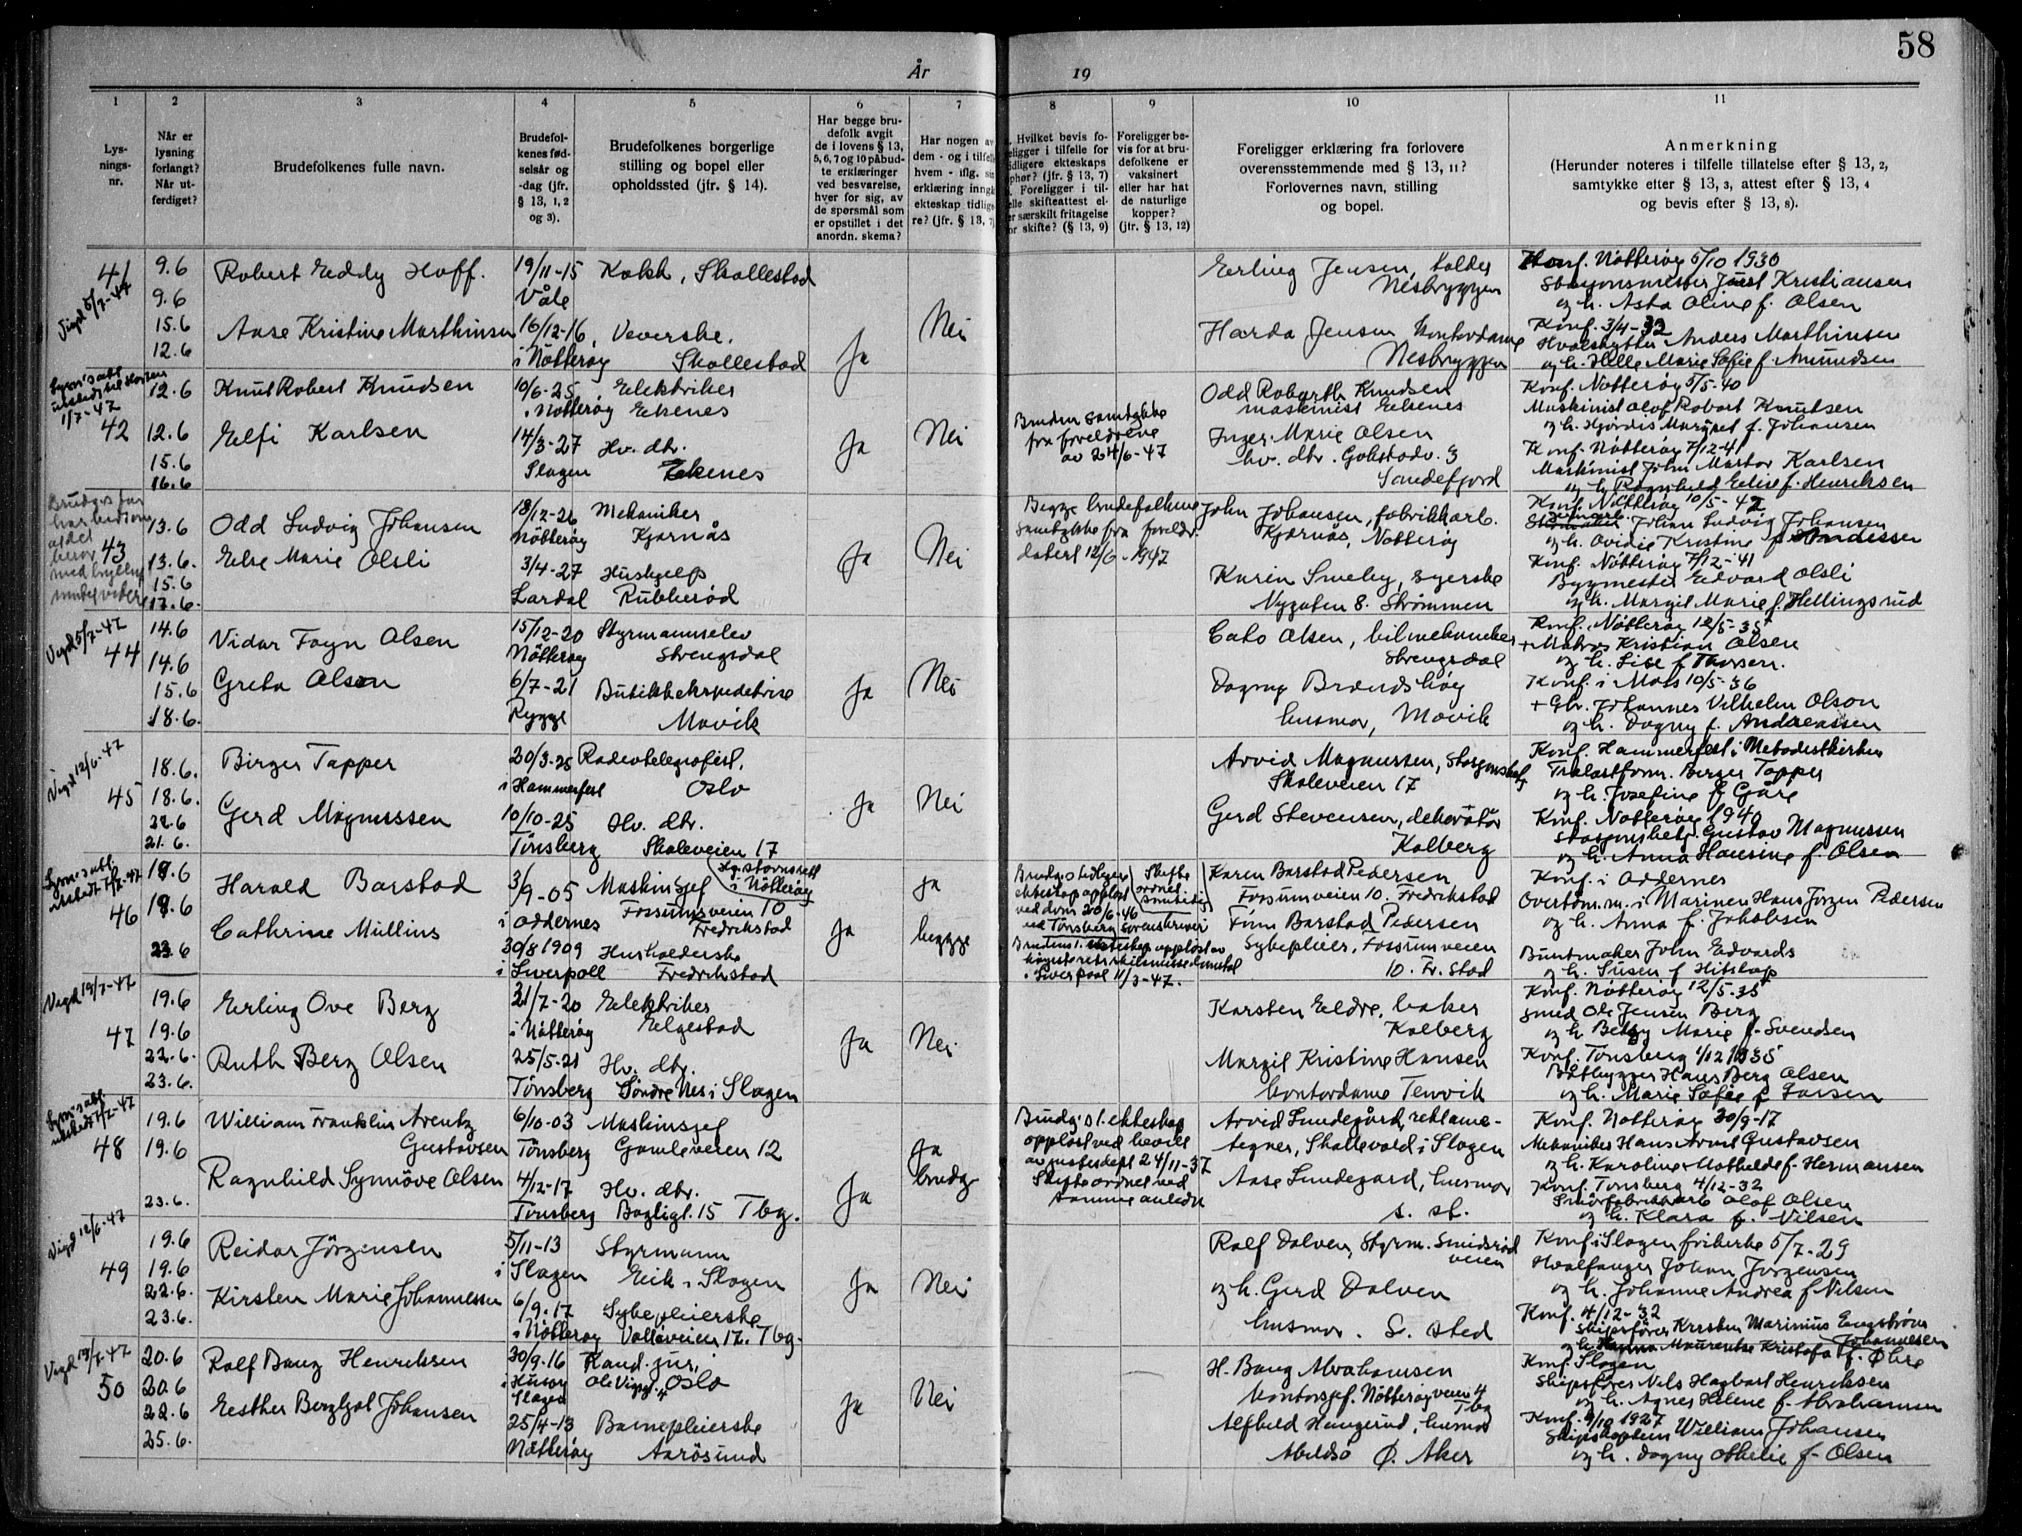 58
År 19
1 2 3 4 5 6 7 8 9 10 11
Lys-
nings-
nr.
Når er
lysning
forlangt?
Når ut-
ferdiget?
Brudefolkenes fulle navn.
Brudefol-
kenes fød-
selsår og
-dag (jfr.
§ 13, 1, 2
og 3).
Brudefolkenes borgerlige
stilling og bopel eller
opholdssted (jfr. § 14).
Har begge bru-
defolk avgit
de i lovens § 13,
5, 6, 7 og 10 påbud-
te erklæringer
ved besvarelse,
hver for sig, av
de spørsmål som
er opstillet i det
anordn. skema?
Har nogen av
dem - og i tilfelle
hvem - iflg. sin
erklæring inngk
ekteskap tidlige
re? (jfr. § 13, 7)
Hvilket bevis fo-
religger i tilfelle for
tidligere ekteskaps
ophør? (jfr. § 13, 7)
Foreligger i til-
elle skifteattest el-
er særskilt fritagelse
or skifte? (§ 13, 9)
Foreligger be-
vis for at bru-
defolkene er
vaksinert
eller har hat
de naturlige
kopper?
(jfr. § 13, 12)
Foreligger erklæring fra forlovere
overensstemmende med § 13, 11?
Forlovernes navn, stilling
og bopel.
Anmerkning
(Herunder noteres i tilfelle tillatelse efter § 13, 2,
samtykke efter § 13, 3, attest efter § 13, 4
og bevis efter § 13, 8).
41
Vigd 5/7-47
9.6
9.6
15.6
12.6
Robert Eddy Hoff.
Aase Kristine Marthinsen
19/11-15
Våle
16/12-16
i Nötteröy
Kokk, Skallestad
Veverske.
Skallestad
Ja
Nei
Erling Jensen, tolder
Nesbryggen
Harda Jensen kontordame
Nesbryggen
Konf. Nötteröy 5/10 1930
Stasjonsmester Juul Kristiansen
og h. Asta Oline f. Olsen
Konf. 3/4-32
Hvalskytter Anders Marthinsen
og h. Helle Marie Sofie f. Amundsen
Lysn's att.
utstedt til Horten
1/7-47
42
12.6
12.6
15.6
16.6
Knut Robert Knudsen
Elfi Karlsen
10/6-25
i Nötteröy
14/3-27
Slagen
Elektriker
Ekenes
Hv. dtr.
Ekenes
Ja
Nei
Bruden samtykke
fra foreldrene
av 24/6-47
Odd Robarth Knudsen
maskinist Ekenes
Inger-Marie Olsen
hv. dtr. Gokstadv. 3
Sandefjord
Konf. Nötteröy 5/5-40
Maskinist Olof Robert Knutsen
og h. Hjördis Margret f. Johansen
Konf. Nötteröy 7/12-41
Maskinist John Martor Karlsen
og h. Ragnhild Elise f. Henriksen
43
13.6
13.6.
15.6
17.6.
Odd Ludvig Johansen
Else Marie Olsli
18/12-26
Nötteröy
3/4-27
Lardal
Mekaniker
Kjørnås
Hushjelp
Rubberød
Ja
Nei
Begge brudefolkene
samtykke fra foreldr.
datert 12/6-1947
John Johansen, fabrikkarb.
Kjørnås, Nötteröy
Karin Smeby, syerske
Nygaten 8. Strømmen
Konf. Nötteröy 10/5-42
Johan Ludvig Johansen
og h. Ovidie Kristine f. Andersen
Konf. Nötteröy 7/12-41
Byggmester Edvard Olsli
og h. Margit Marie f. Hellingsrud
Vigd 5/7-47
44
14.6
14.6
15.6
18.6.
Vidar Foyn Olsen
Greta Olsen
15/12-20
Nötteröy
6/7-21
Rygge
Styrmannselev
Strengsdal
Butikkekspeditrise
Movik
Ja
Nei
Cato Olsen, bilmekaniker
Strengsdal
Dagny Brendshög
husmor, Movik
Konf. Nötteröy 12/5-35
+ Matros Kristian Olsen
og h. Lise f. Thorsen.
Konf. i Moss 10/5-36
+ Gbr. Johannes Vilhelm Olson
og h. Dagny f. Andreassen
Vigd 12/6-47
45
18.6.
18.6.
21.6.
Birger Tapper
Gerd Magnussen
20/3-25
i Hammerfest
10/10-25
Tønsberg
Radiotelegrafist.
Oslo
Hv. dtr.
Skoleveien 17
Ja
Nei
Arvid Magnussen,
Skoleveien 17
Gerd Stevensen, dekoratör
Kolberg
Konf. Hammerfest i Metodistkirken
Trelastform. Berger Tapper
og h. Josefine f. Gåre
Konf. Nötteröy 1940
Gustav Magnussen
og h. Anna Hansine f. Olsen
Lysn's att.
utstedt 7/7-47
46
19.6
19.6
23.6
Harald Barstad
Cathrine Mullins
3/9-05
i Oddernes
30/8 1909
i Liverpoll
Maskinsjef
Fossumsveien 10
Fredrikstad
Husholderske
Fredrikstad
Ja
ja
begge
Brudg.s tidligere
ekteskap oppløst
ved dom 20/6-46
ved Tønsberg Sorenskriver
Skifte
ordnet
samtidig
Brudens 1. ekteskap oppløst av
i Liverpool 11/3-47.
Karen Barstad Pedersen
Fossumveien 10. Fredrikstad
Finn Barstad Pedersen
Sykepleier, Fossumveien
10. Fr.stad
Konf. i Oddernes
Overtöm.m. i Marinen Hans Jörgen Pedersen
og h. Anna f. Jakobsen
Buntmaker John Edvards
og h. Susen f. Hitskap
Vigd 19/7-47
47
19.6
19.6
22.6.
23.6.
Erling Ove Berg
Ruth Berg Olsen
21/7-20
i Nötteröy
25/5-21
Tønsberg
Elektriker
Elgestad
Hv. dtr.
Søndre Nes i Slagen
Ja
Nei
Karsten Eldre, baker
Kolberg
Margit Kristine Hansen
kontordame Tenvik
Konf. Nötteröy 12/5-35
Smed Ole Jensen Berg
og h. Betzy Marie f. Svendsen
Konf. Tønsberg 1/12 1935
Båtbygger Hans Berg Olsen
og h. Marie Sofie f. Larsen
Lysn's att.
utstedt 7/7-47
48
19.6
19.6
23.6.
William Franklin Arentz
Gustavsen
Ragnhild Synnöve Olsen
6/10-03
Tønsberg
4/12-17
Tønsberg
Maskinsjef
Gamleveien 12
Hv. dtr.
Bagligt. 15 Tbg.
Ja
Ja
brudg.
Brudg.s 1. ekteskap
oppløst ved bevill.
av justisdept 24/11-37
Skifte ordnet ved
samme anledn
Arvid Lundegård, reklame-
tegner, Skallevold i Slagen
Aase Lundegard, husmor
s. st.
Konf. Nötteröy 30/9-17
Mekaniker Hans Arnt Gustavsen
og h. Karoline Mathilde f. Hermansen
Konf. Tønsberg 4/12-32
Smörfabrikkarb Olof Olsen
og h. Klara f. Nilsen
Vigd 12/6-47
49
19.6
19.6
22.6.
23.6.
Reidar Jörgensen
Kirsten Marie Johannessen
5/11-13
i Slagen
6/9-17
i Nötteröy
Styrmann
Eik i Slagen
Sykepleierske
Valløveien 17. Tbg.
Ja
Nei
Rolf Dalven, Styrm. Smidsrød
veien
og h. Gerd Dalven
husmor. S. sted
Konf i Slagen frikirke 5/7-29
Hvalfanger Johan Jörgensen
og h. Johanne Andrea f. Nilsen
Konf. 4/12-32
Skipsfører Kristen Marinius Engström
Johannesen
og h. Hanna Maurentse Kristofa f. Øhre
50
20.6
20.6
22.6
25.6.
Rolf Bang Henriksen
Esther Bergljot Johansen
30/9-16
i Husøy
Slagen
25/4-13
Nötteröy
Kand. jur.
Oslo
Barnepleierske
Aarösund
Ja
Nei
H. Bang Abrahamsen
Kontorsjef. Nötteröyveien 4
Tbg
Alfhild Haugerud, husmor
Abildsö Ø. Aker
Konf. Slagen
Skipsfører Nils Hagbart Henriksen
og h. Agnes Helene f. Abrahamsen
Konf. 9/10 1927
Skipskaptein William Johansen
og h. Dagny Othelie f. Olsen